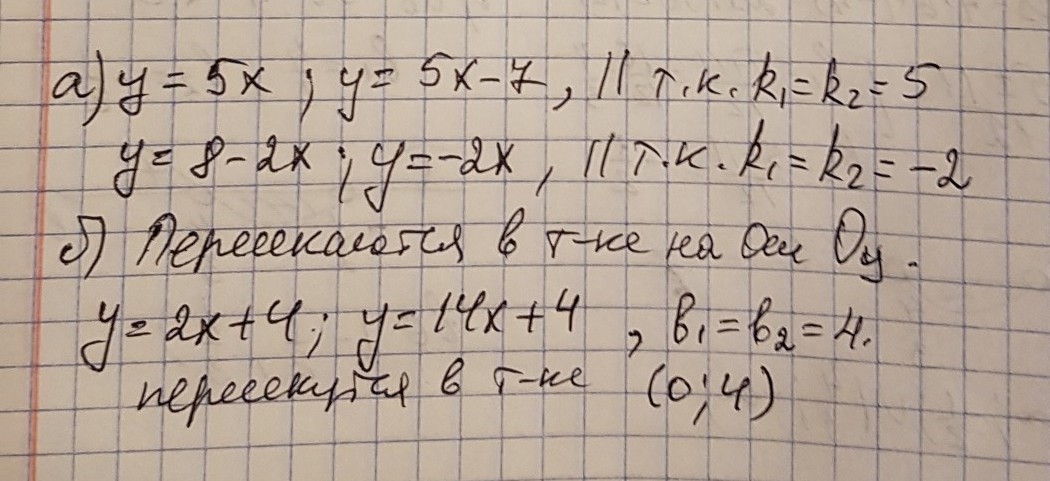 а) y = 5x ; y = 5x-7, || т.к. k₁=k₂=5
y = 8-2x ; y=-2x , || т.к. k₁=k₂=-2
б) Пересекаются в т-ке на Оси Оy.
y=2x+4; y=14x+4 , b₁=b₂=4.
пересекутся в т-ке (0;4)